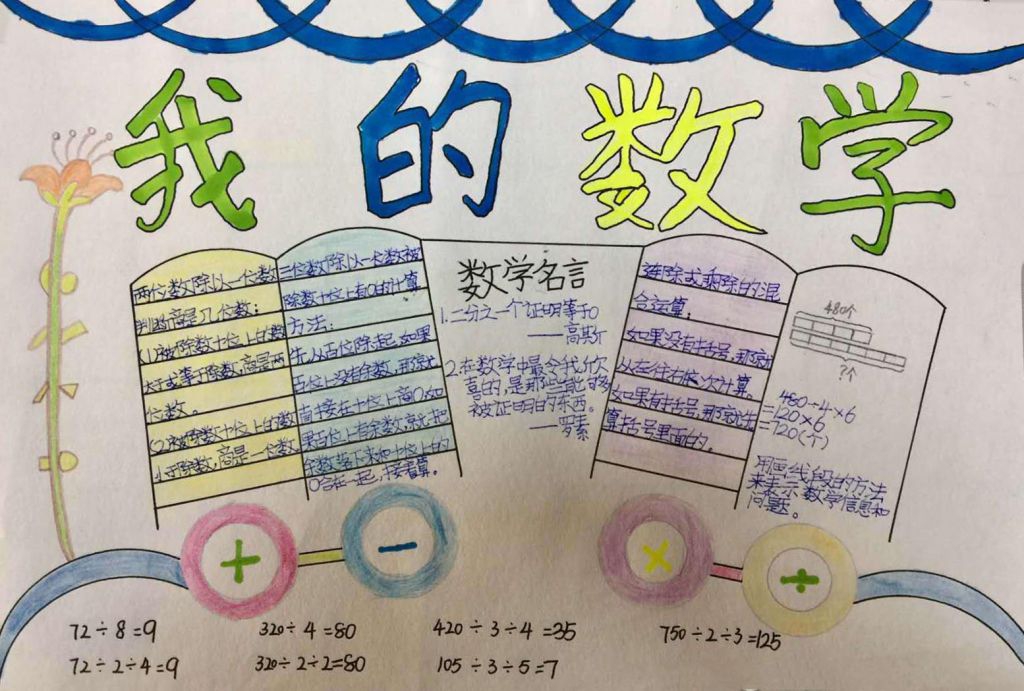 我的数学
两位数除以一位数
判断商是几位数:
(1)被除数十位上的数
大于或等于除数,商是两
位数。
(2)被除数十位上的数
小于除数,商是一位数
三位数除以一位数被
除数十位上有0的计算
方法:
先从百位除起,如果
百位上没有余数,那就
直接在十位上商0,如
果百位上有余数,就把
余数落下来和十位上的
0合在一起,接着算。
数学名言
1.二分之一个证明等于0
——高斯
2.在数学中最令我欣
喜的,是那些能够
被证明的东西。
——罗素
连除或乘除的混
合运算:
如果没有括号,那就
从左往右依次计算。
如果有括号,那就先
算括号里面的。
480个
?个
480÷4×6
=120×6
=720(个)
用画线段的方法
来表示数学信息和
问题。
+
−
×
÷
72÷8=9
320÷4=80
420÷3÷4=35
750÷2÷3=125
72÷2÷4=9
320÷2÷2=80
105÷3÷5=7